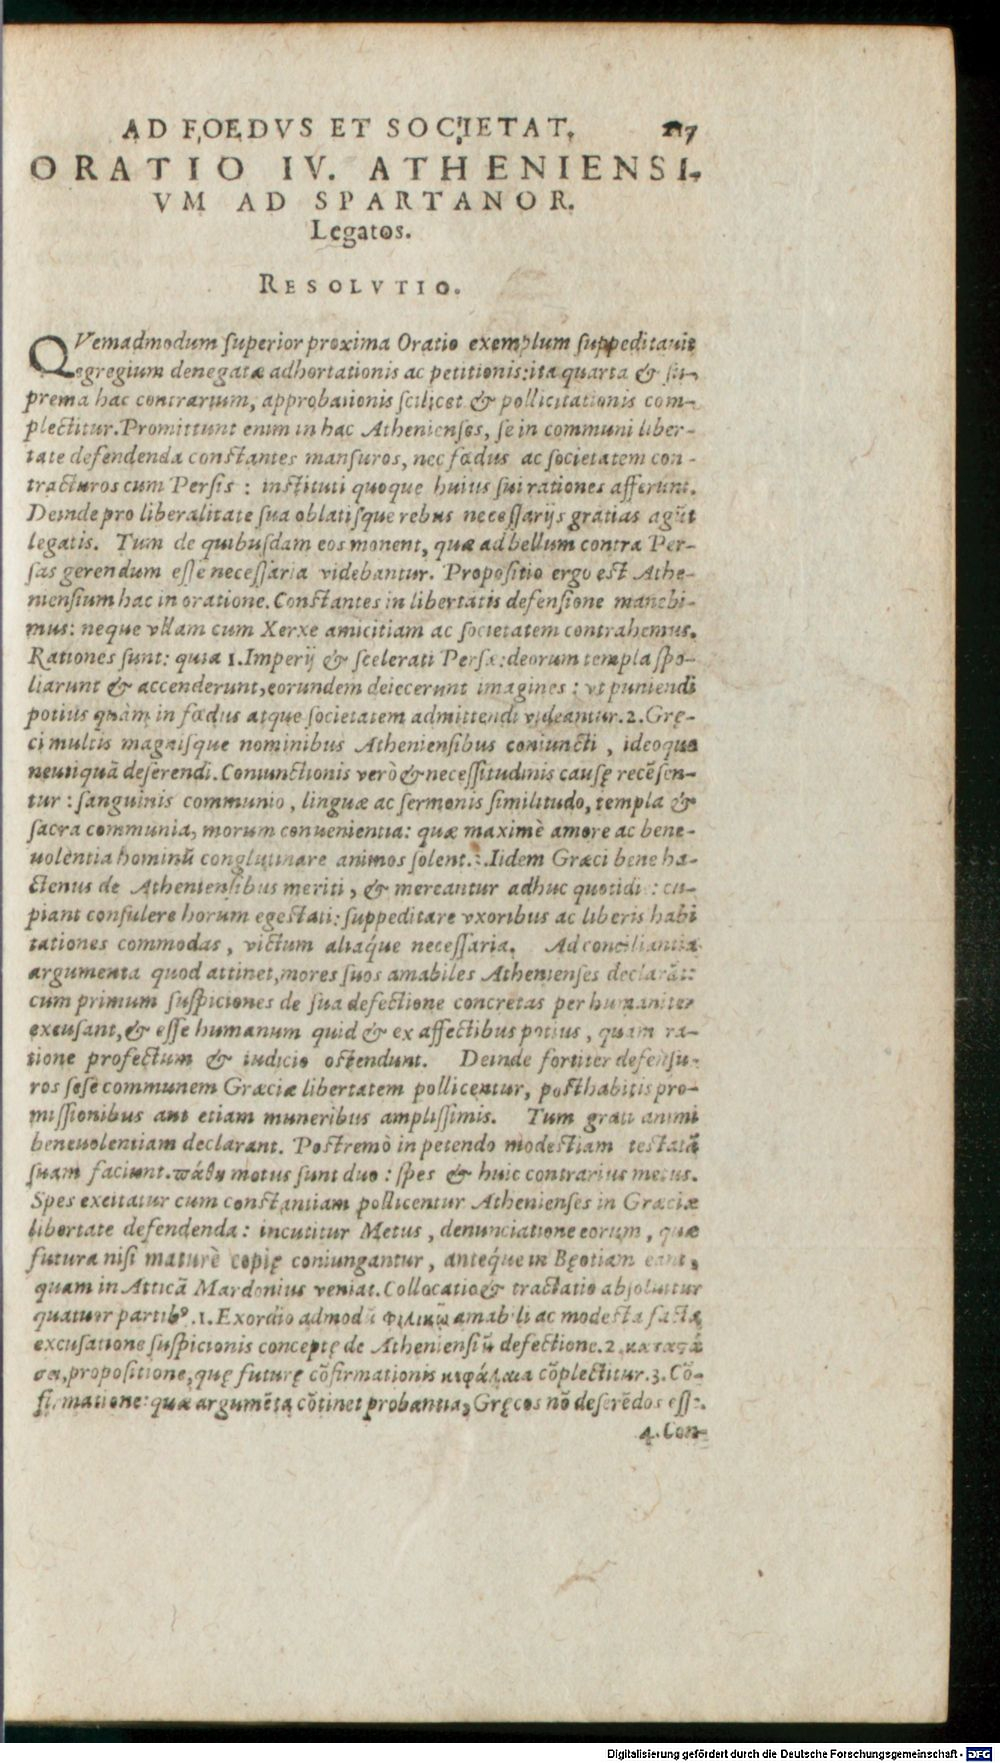 AD FOEDVS ET SOCIETAT. 117
ORATIO IV. ATHENIENSI.
VM AD SPARTANOR.
Legatos.
RESOLVTIO.
QVemadmodum superior proxima Oratio exemplum suppeditauit
egregium denegatæ adhortationis ac petitionis: ita quarta & su-
prema hac contrarium, approbationis scilicet & pollicitationis com-
plectitur. Promittunt enim in hac Athenienses, se in communi liber-
tate defendenda constantes mansuros, nec fœdus ac societatem con-
tracturos cum Persis : instituti quoque huius sui rationes afferunt.
Deinde pro liberalitate sua oblatisque rebus necessarijs gratias agũt
legatis. Tum de quibusdam eos monent, quæ ad bellum contra Per-
sas gerendum esse necessaria videbantur. Propositio ergo est Athe-
niensium hac in oratione. Constantes in libertatis defensione manebi-
mus: neque vllam cum Xerxe amicitiam ac societatem contrahemus.
Rationes sunt: quia 1. Imperij & scelerati Persæ: deorum templa spo-
liarunt & accenderunt, eorundem deiecerunt imagines : vt puniendi
potius quàm in fœdus atque societatem admittendi videantur. 2. Grę-
ci multis magnisque nominibus Atheniensibus coniuncti, ideoque
neutiquã deserendi. Coniunctionis verò & necessitudinis causę recẽsen-
tur : sanguinis communio, linguæ ac sermonis similitudo, templa &
sacra communia, morum conuenientia: quæ maximè amore ac bene-
uolentia hominũ conglutinare animos solent. Iidem Græci bene ha-
ctenus de Atheniensibus meriti, & mereantur adhuc quotidi : cu-
piant consulere horum egestati: suppeditare vxoribus ac liberis habi
tationes commodas, victum aliaq́ue necessaria. Ad conciliantia
argumenta quod attinet, mores suos amabiles Athenienses declarãt:
cum primum suspiciones de sua defectione concretas per humaniter
excusant, & esse humanum quid & ex affectibus potius, quam ra-
tione profectum & iudicio ostendunt. Deinde fortiter defensu-
ros sese communem Græciæ libertatem pollicentur, posthabitis pro-
missionibus aut etiam muneribus amplissimis. Tum grati animi
beneuolentiam declarant. Postremò in petendo modestiam testatã
suam faciunt. πάθη motus sunt duo : spes & huic contrarius metus.
Spes excitatur cum constantiam pollicentur Athenienses in Græciæ
libertate defendenda: incutitur Metus, denunciatione eorum, quæ
futura nisi maturè copię coniungantur, anteq́ue in Bęotiam eant,
quam in Atticã Mardonius veniat. Collocatio & tractatio absoluitur
quatuor partibꝰ. 1. Exordio admodũ φιλικῶ amabili ac modesta facta
excusatione suspicionis conceptę de Atheniensiũ defectione. 2. καταςά
σει, propositione, quę futurę cõfirmationis κεφάλαια cõplectitur. 3. Cõ-
firmatione: quæ argumẽta cõtinet probantia, Gręcos nõ deserẽdos esse.
4. Con-
Digitalisierung gefördert durch die Deutsche Forschungsgemeinschaft - DFG